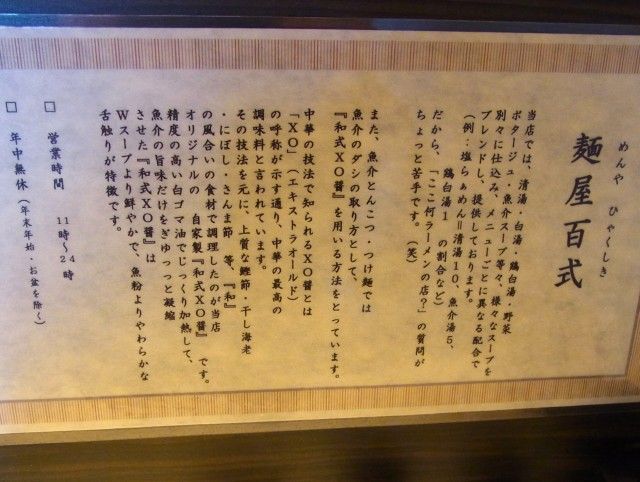 めんや ひゃくしき
麺屋百式
当店では、清湯・白湯・鶏白湯・野菜
ポタージュ・魚介スープ等々、様々なスープを
別々に仕込み、メニューごとに異なる配合で
ブレンドし、提供しております。
(例:塩らぁめん=清湯10、魚介湯5、
鶏白湯1 の割合など)
だから、「ここ何ラーメンの店?」の質問が
ちょっと苦手です。(笑)
また、魚介とんこつ・つけ麺では
魚介のダシの取り方として、
『和式XO醤』を用いる方法をとっています。
中華の技法で知られるXO醤とは
「XO」(エキストラオールド)
の呼称が示す通り、中華の最高の
調味料と言われています。
その技法を元に、上質な鰹節・干し海老
・にぼし・さんま節 等、『和』
の風合いの食材で調理したのが当店
オリジナルの 自家製『和式XO醤』 です。
精度の高い白ゴマ油でじっくり加熱して、
魚介の旨味だけをぎゅっっと凝縮
させた『和式XO醤』は
Wスープより鮮やかで、魚粉よりやわらかな
舌触りが特徴です。
□ 営業時間 11時~24時
□ 年中無休(年末年始・お盆を除く)